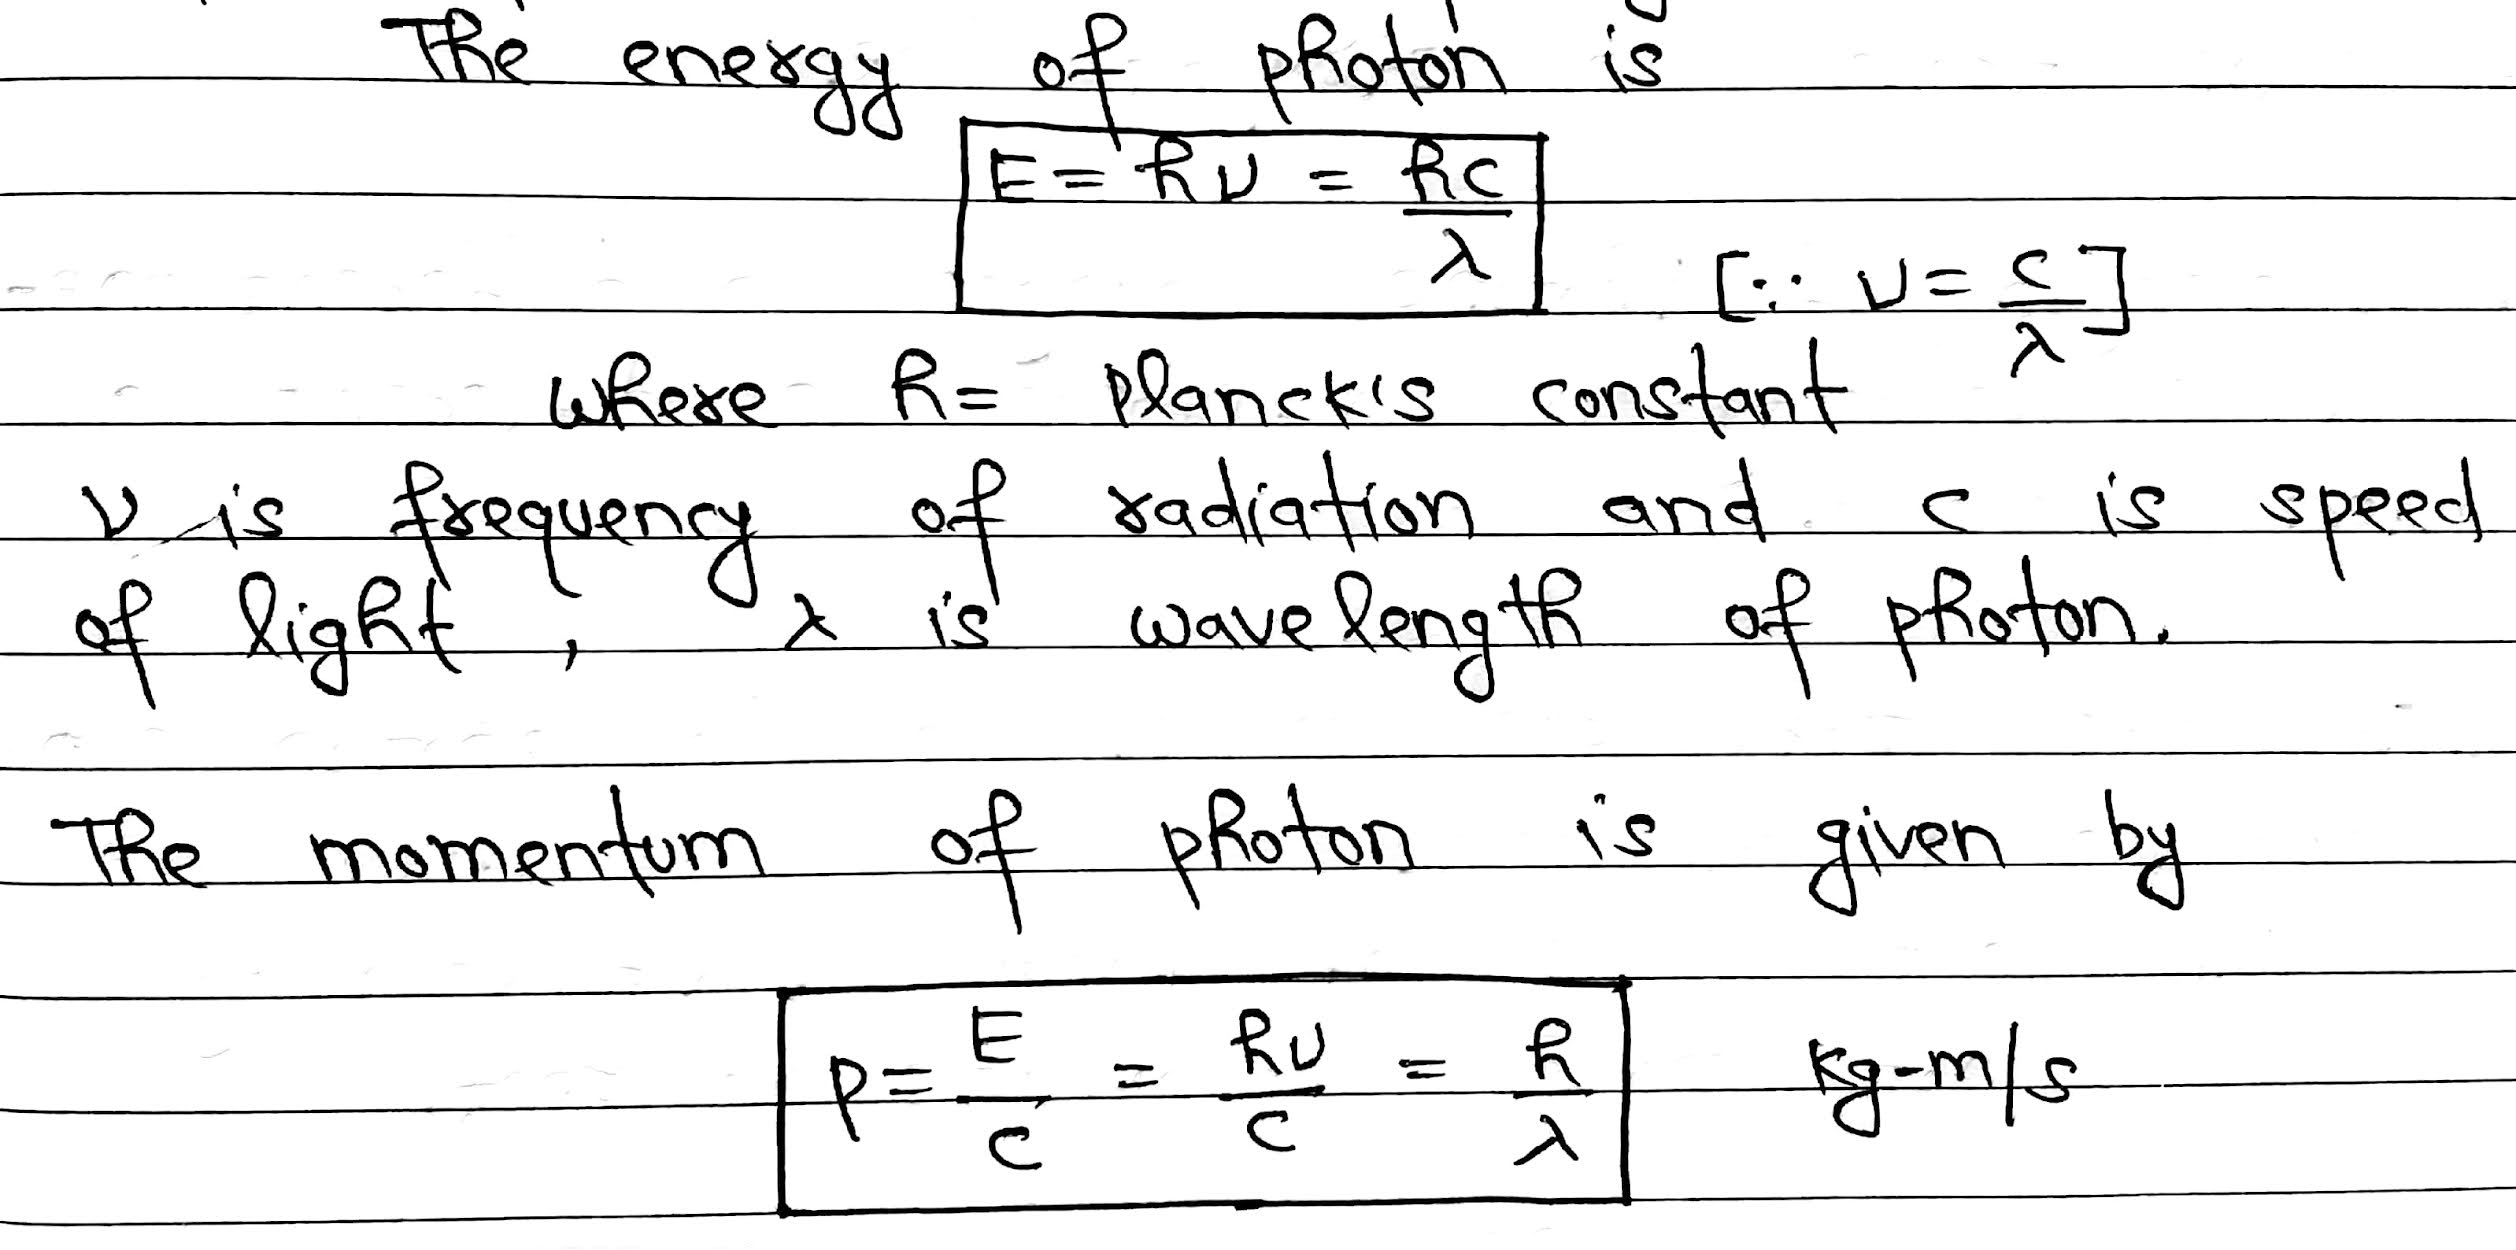 The energy of photon is
E = hν = hc/λ
[∵ ν = c/λ]
where h = Planck's constant
ν is frequency of radiation and c is speed
of light, λ is wavelength of photon.
The momentum of photon is given by
p = E/c = hν/c = h/λ kg-m/s